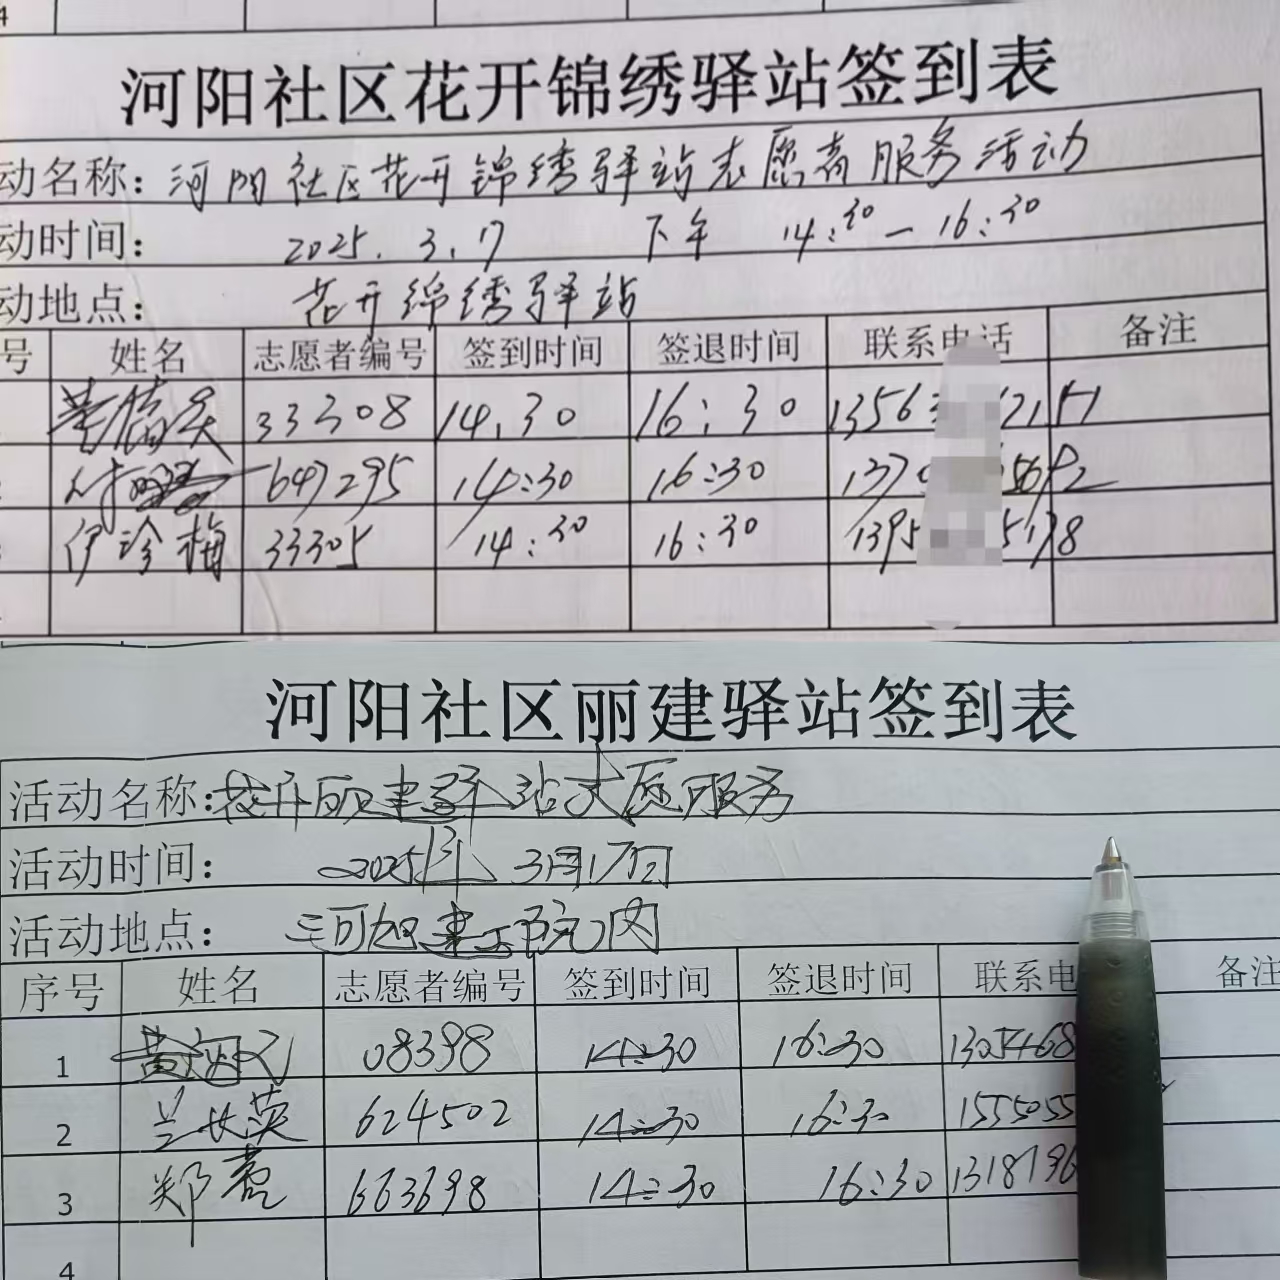 4
河阳社区花开锦绣驿站签到表
动名称：河阳社区花开锦绣驿站志愿者服务活动
动时间： 2025.3.17 下午 14:30—16:30
动地点： 花开锦绣驿站
号 姓名 志愿者编号 签到时间 签退时间 联系电话 备注
33308 14.30 16:30 1356
647295 14:30 16:30 137
伊珍梅 33305 14:30 16:30 1395
河阳社区丽建驿站签到表
活动名称：花开丽建驿站志愿服务
活动时间： 2025年 3月17日
活动地点： 院内
序号 姓名 志愿者编号 签到时间 签退时间 联系电 备注
1 08398 14:30 16:30 1305468
2 兰长英 624502 14:30 16:30 1555055
3 郑 663698 14:30 16:30 1318796
4